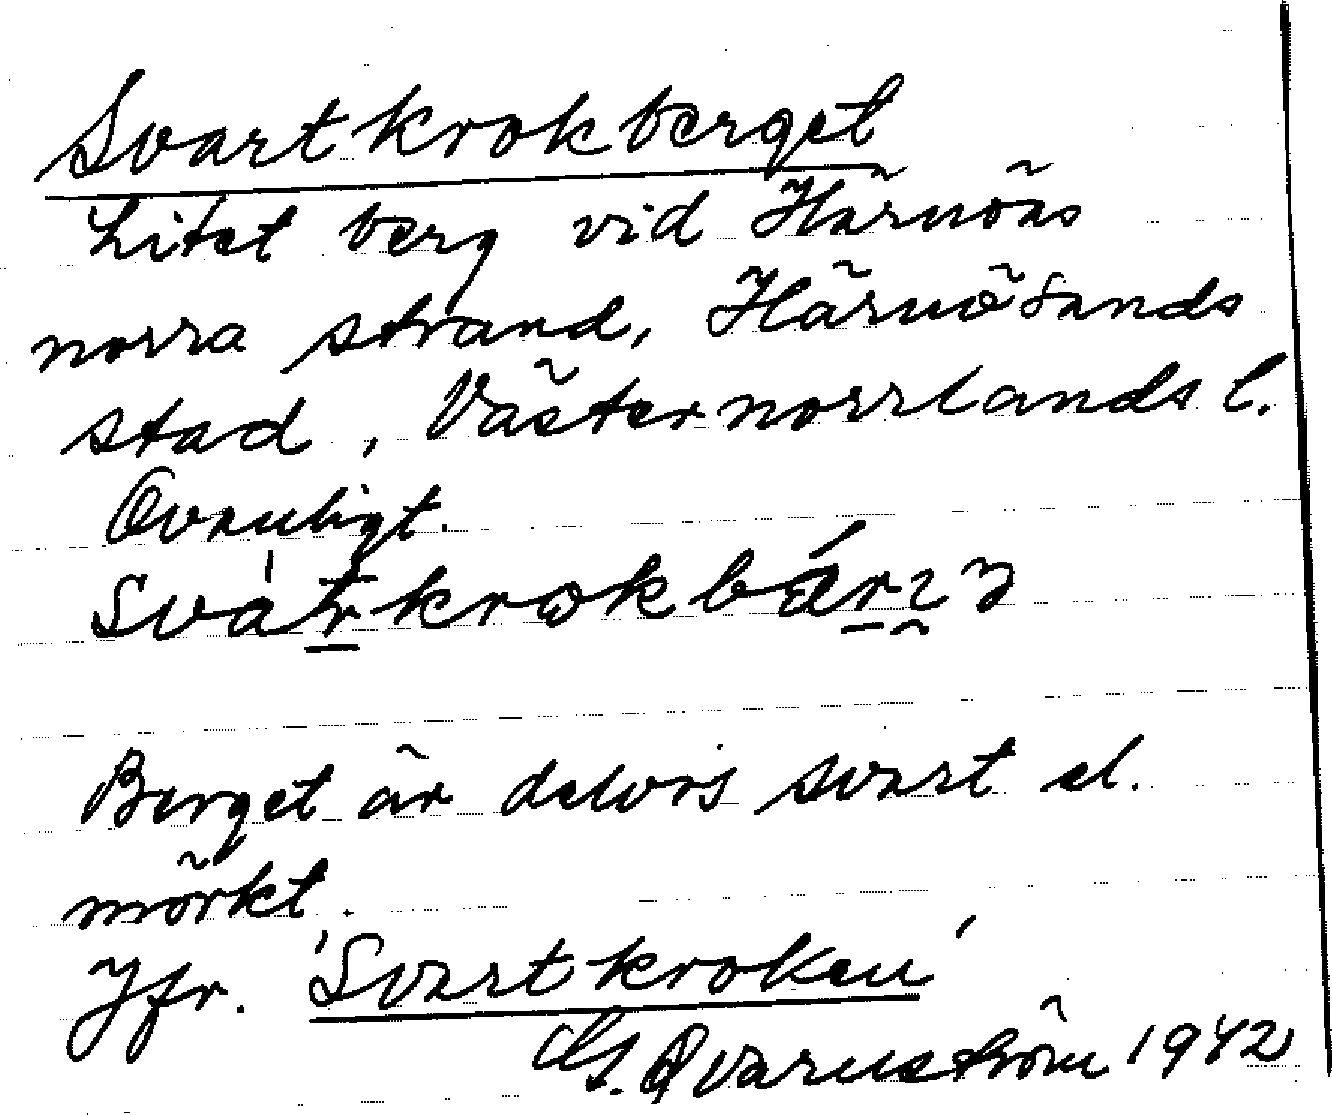 Svartkrokberget
Litet berg vid Härnöns
norra strand, Härnösands
stad, Västernorrlands l.
Ovanligt.
Berget är delvis svart el.
mörkt.
Jfr. 'Svartkroken'
G. Qvarnström 1942